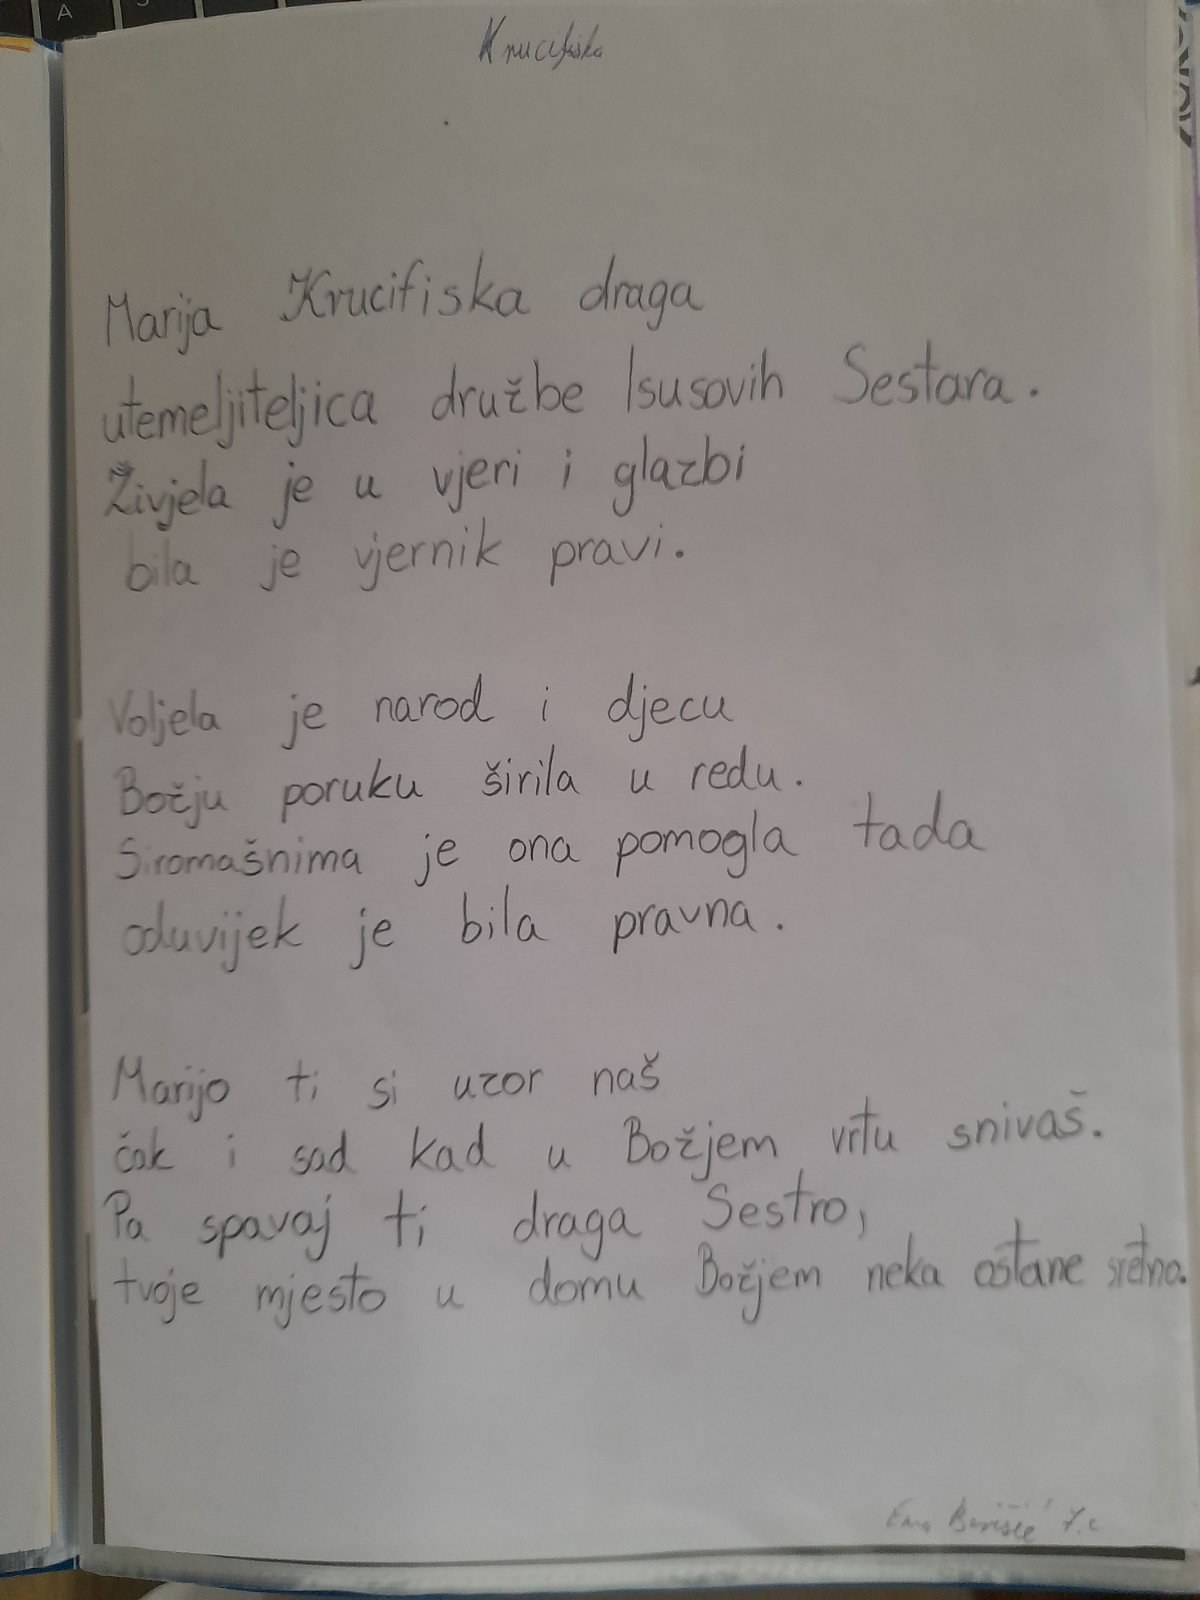 Krucifiska
Marija Krucifiska draga
utemeljiteljica družbe Isusovih Sestara.
Živjela je u vjeri i glazbi
bila je vjernik pravi.
Voljela je narod i djecu
Božju poruku širila u redu.
Siromašnima je ona pomogla tada
oduvijek je bila pravna.
Marijo ti si uzor naš
čak i sad kad u Božjem vrtu snivaš.
Pa spavaj ti draga Sestro,
tvoje mjesto u domu Božjem neka ostane sretno.
Ema Barišić 7.c